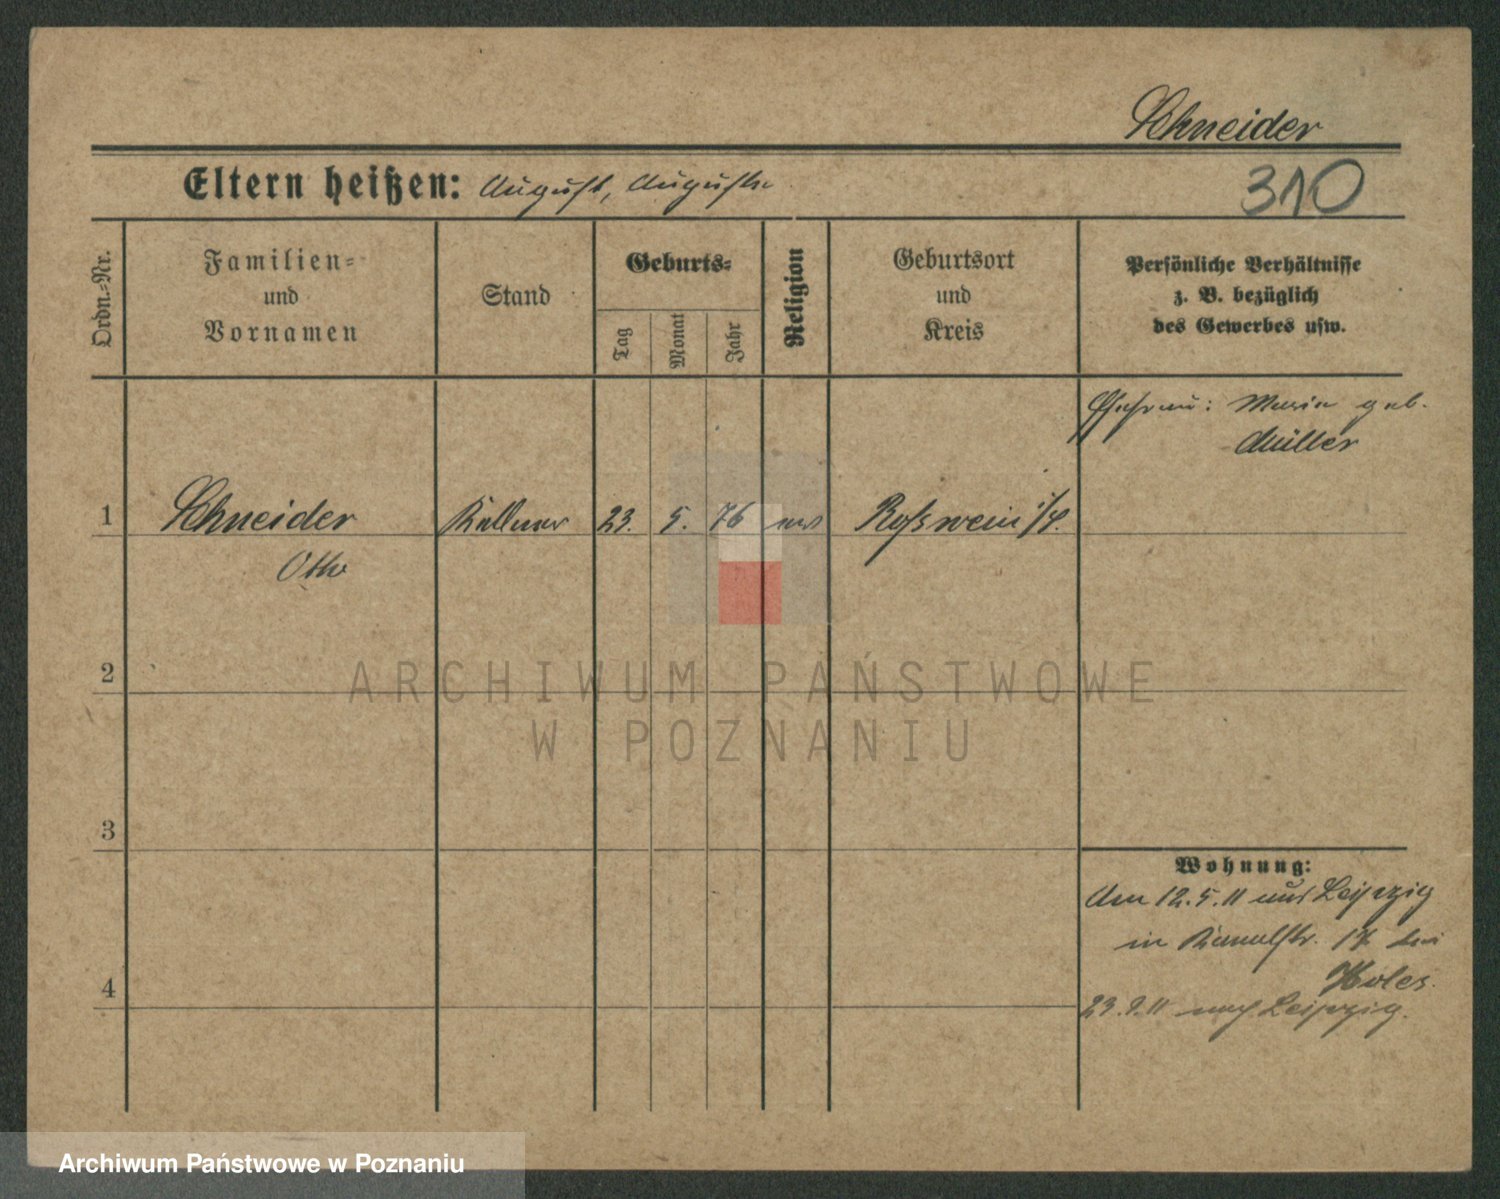 Schneider
Eltern heißen: August, Auguste
310
Ordn.-Nr.
Familien-
und
Vornamen
Stand
Geburts-
Tag
Monat
Jahr
Religion
Geburtsort
und
Kreis
Persönliche Verhältnisse
z. B. bezüglich
des Gewerbes usw.
Ehefrau: Maria geb.
Müller
1
Schneider
Kellner
23.
5.
76
ev
Roßwein i/S.
Otto
2
ARCHIWUM PAŃSTWOWE
W POZNANIU
3
Wohnung:
Am 12.5.11 aus Leipzig
in Kanalstr. 17 bei
4
23.9.11 nach Leipzig.
Archiwum Państwowe w Poznaniu